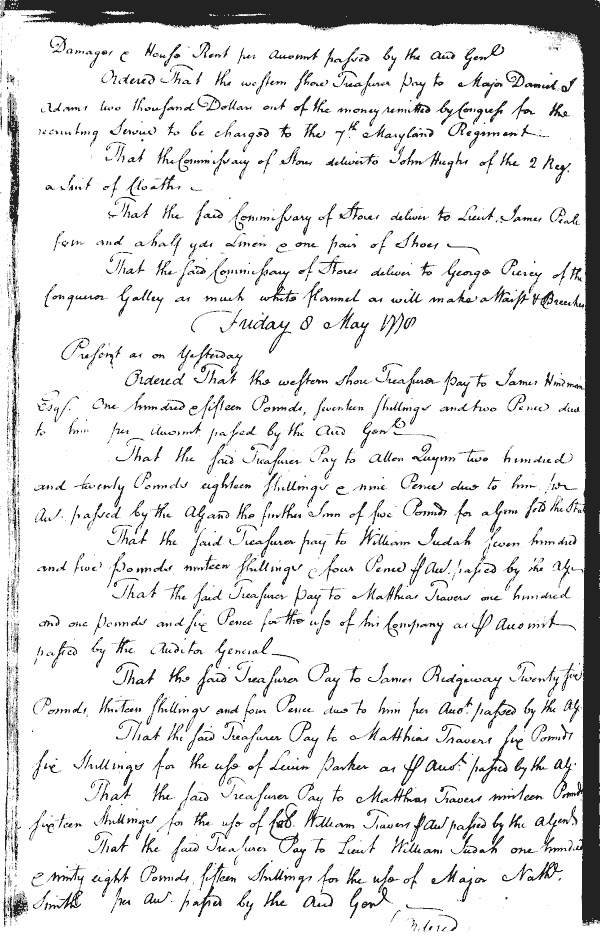 Damages & House Rent per Account passed by the Aud Genl
Ordered That the western shore Treasurer pay to Major Daniel J
Adams two thousand Dollars out of the money remitted by Congress for the
recruiting Service to be charged to the 7th Maryland Regiment
That the Commissary of Stores deliver to John Hughs of the 2 Reg.
a Suit of Cloaths
That the said Commissary of Stores deliver to Lieut. James Peale
four and a half yds Linen & one pair of Shoes
That the said Commissary of Stores deliver to George Piercy of the
Conqueror Galley as much white flannel as will make a Waist & Breeches
Friday 8 May 1778
Present as on Yesterday
Ordered That the western shore Treasurer pay to James Hindman
Esqr. One hundred & fifteen Pounds, seventeen shillings and two Pence due
to him per Account passed by the Aud Genl
That the said Treasurer Pay to Allen Quynn two hundred
and twenty Pounds eighteen shillings & nine Pence due to him per
Acc. passed by the AG and the further Sum of five Pounds for a Gun sold the State
That the said Treasurer pay to William Judah seven hundred
and five Pounds nineteen shillings & four Pence Acc. passed by the AG
That the said Treasurer pay to Matthias Travers one hundred
and one pounds and six Pence for the use of his Company as Account
passed by the Auditor General
That the said Treasurer Pay to James Ridgeway Twenty five
Pounds, thirteen shillings and four Pence due to him per Acct. passed by the AG
That the said Treasurer Pay to Matthias Travers six Pounds
six Shillings for the use of Levin Parker as Acct. passed by the AG
That the said Treasurer Pay to Matthias Travers nineteen Pounds
sixteen Shillings for the use of William Travers Acc passed by the
That the said Treasurer Pay to Lieut William Judah one hundred
& ninty eight Pounds, fifteen Shillings for the use of Major Nathl.
Smith per Acc. passed by the Aud Genl
Ordered